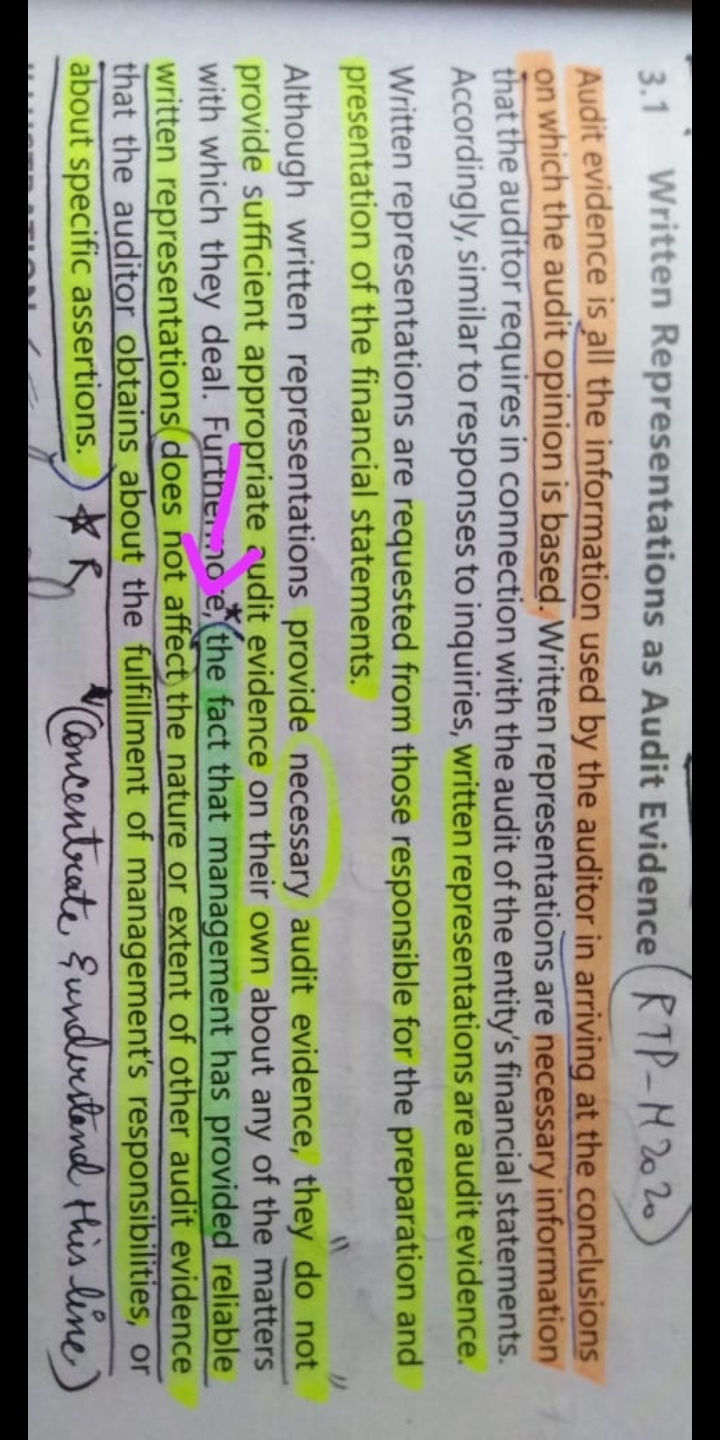 3.1 Written Representations as Audit Evidence (RTP-M2020)
Audit evidence is all the information used by the auditor in arriving at the conclusions
on which the audit opinion is based. Written representations are necessary information
that the auditor requires in connection with the audit of the entity's financial statements.
Accordingly, similar to responses to inquiries, written representations are audit evidence.
Written representations are requested from those responsible for the preparation and
presentation of the financial statements.
Although written representations provide necessary audit evidence, they "do not"
provide sufficient appropriate audit evidence on their own about any of the matters
with which they deal. Furthermore, the fact that management has provided reliable
written representations does not affect the nature or extent of other audit evidence
that the auditor obtains about the fulfillment of management's responsibilities, or
about specific assertions. R (Concentrate & understand this line)